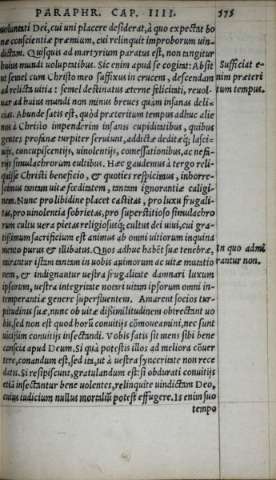 PARAPHR. CAP. IIII. 575
uoluntati Dei, cui uni placere desiderat, à quo expectat bo
næ conscientiæ præmium, cui relinquit improborum uin-
dictam. Quisquis ad martyrium paratus est, non tangitur
huius mundi uoluptatibus. Sic enim apud se cogitat: Absit
ut semel cum Christo meo suffixus in crucem, descendam
ad relicta uitia: semel destinatus æternæ felicitati, reuol-
uar ad huius mundi non minus breues quàm insanas deli-
cias. Abunde satis est, quòd præteritum tempus adhuc alie
nis à Christo impendérim insanis cupiditatibus, quibus
gentes prophanæ turpiter seruiunt, addictæ deditæq; lasci-
uijs, concupiscentijs, uinolentijs, comessationibus, ac nefa
rijs simulachrorum cultibus. Hæc gaudemus à tergo reli-
quisse Christi beneficio, & quoties respicimus, inhorre-
scimus tantam uitæ fœditatem, tantam ignorantiæ caligi-
nem. Nunc pro libidine placet castitas, pro luxu frugali-
tas, pro uinolentia sobrietas, pro superstitioso simulachro
rum cultu uera pietas religiositasq; cultus dei uiui, cui gra-
tissimum sacrificium est animus ab omni uitiorum inquina
mento purus & illibatus. Quos adhuc habet suæ tenebræ,
mirantur istam tantam in uobis animorum ac uitæ mutatio
nem, & indignantur uestra frugalitate damnari luxum
ipsorum, uestra integritate notari uitam ipsorum omni in-
temperantiæ genere superfluentem. Amarent socios tur-
pitudinis suæ, nunc ob uitæ dissimilitudinem obtrectant uo
bis, sed non est quod horũ conuitijs cõmoueamini, nec sunt
uicissim conuitijs insectandi. Vobis satis sit mens sibi bene
conscia apud Deum. Si quà potestis illos ad meliora cõuer
tere, conandum est, sed ita, ut à uestra synceritate non rece
datis. Si resipiscunt, gratulandum est: si obdurati conuitijs
etiã insectantur bene uolentes, relinquite uindictam Deo,
cuius iudicium nullus mortaliũ potest effugere. Is enim suo
tempo
Sufficiat e-
nim præteri
tum tempus.
In quo admi
rantur non.